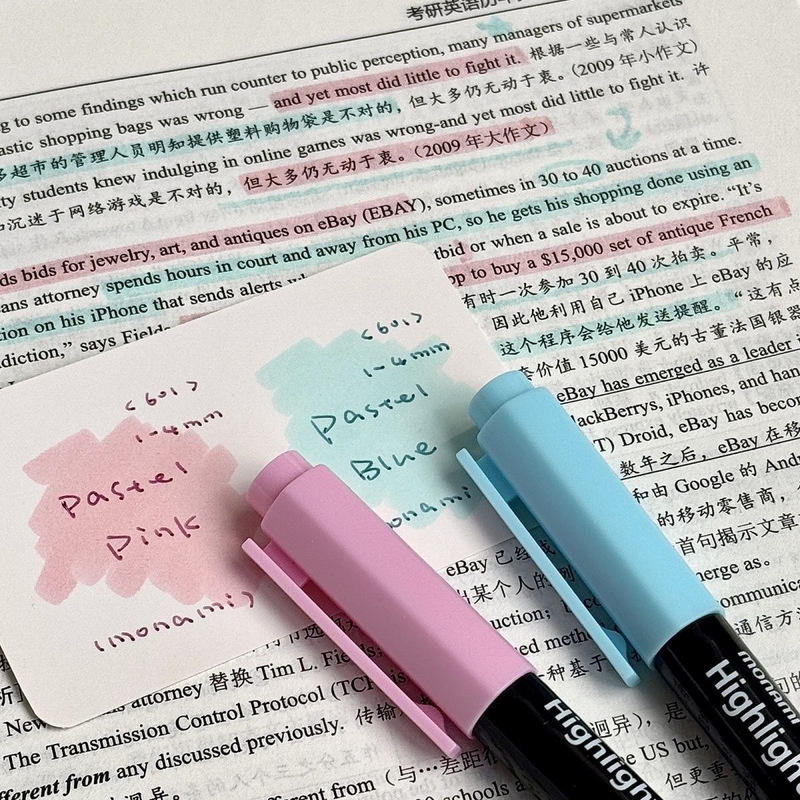 考研英语历年
g to some findings which run counter to public perception, many managers of supermarkets
astic shopping bags was wrong — and yet most did little to fight it. 根据一些与常人认识
多超市的管理人员明知提供塑料购物袋是不对的，但大多仍无动于衷。（2009 年小作文）
ty students knew indulging in online games was wrong-and yet most did little to fight it. 许
沉迷于网络游戏是不对的，但大多仍无动于衷。（2009 年大作文）
ds bids for jewelry, art, and antiques on eBay (EBAY), sometimes in 30 to 40 auctions at a time.
ans attorney spends hours in court and away from his PC, so he gets his shopping done using an
tion on his iPhone that sends alerts tbid or when a sale is about to expire. “It's
diction,” says Fields op to buy a $15,000 set of antique French
有时一次参加 30 到 40 次拍卖。平常，
因此他利用自己 iPhone 上 eBay 的应
这个程序会给他发送提醒。“这有点
套价值 15000 美元的古董法国银器
eBay has emerged as a leader i
ackBerrys, iPhones, and han
T) Droid, eBay has becom
数年之后，eBay 在移
和由 Google 的 Andr
的移动零售商，
首句揭示文章
<601>
1-4mm
Pastel
Pink
(monami)
<601>
1-4mm
Pastel
Blue
onami
eBay 已经成
出某个人的
uction;
merge as。
ommunica
通信方
ised metho
一种基于
New attorney 替换 Tim L. Fields,
The Transmission Control Protocol (TCP) is
fferent from any discussed previously. 传输
迥异），是
fferent from（与…差距很
he US but,
但更重
00 schools a
Highligh
monami
Highligh